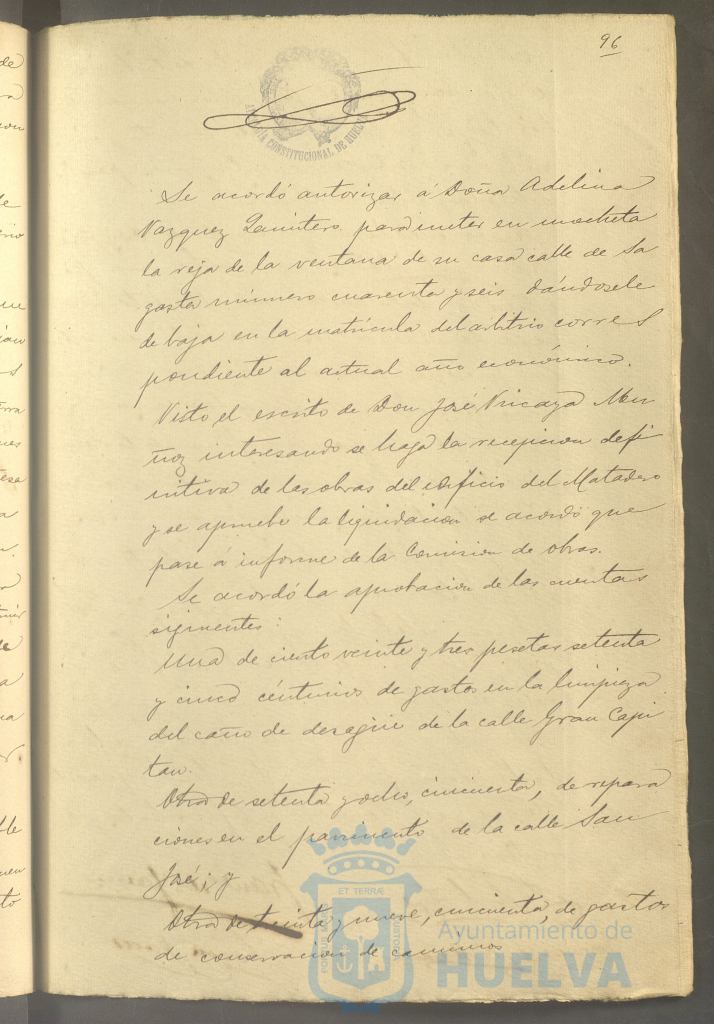 96
ALCALDIA CONSTITUCIONAL DE HUELVA
Se acordó autorizar á Doña Adelina
Vazquez Quintero para meter en mocheta
la reja de la ventana de su casa calle de Sa
gasta número cuarenta y seis dándosele
de baja en la matrícula del arbitrio corres
pondiente al actual año económico.
Visto el escrito de Don José Vizcaya Mu
ñoz interesando se haga la recepcion defi
nitiva de las obras del edificio del Matadero
y se apruebe la liquidacion se acordó que
pase á informe de la Comision de obras.
Se acordó la aprobacion de las cuentas
siguientes:
Una de ciento veinte y tres pesetas setenta
y cinco céntimos de gastos en la limpieza
del caño de desagüe de la calle Gran Capi
tan.
Otra de setenta y ocho, cincuenta, de repara
ciones en el pavimento de la calle San
José; y
Otra de treinta y nueve, cincuenta, de gastos
de conservacion de caminos
ET TERRÆ
PORTUS MARIS
CUSTODIA
Ayuntamiento de
HUELVA